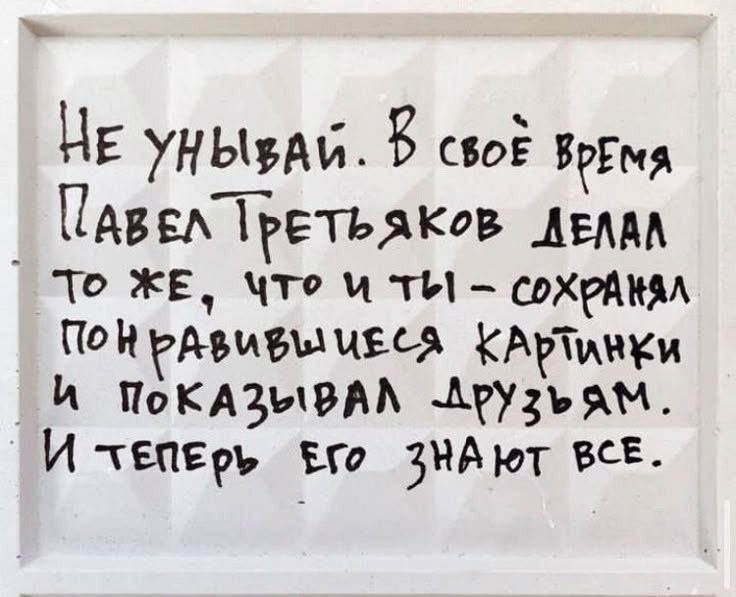 Не унывай. В своё время
Павел Третьяков делал
то же, что и ты – сохранял
понравившиеся картинки
и показывал друзьям.
И теперь его знают все.